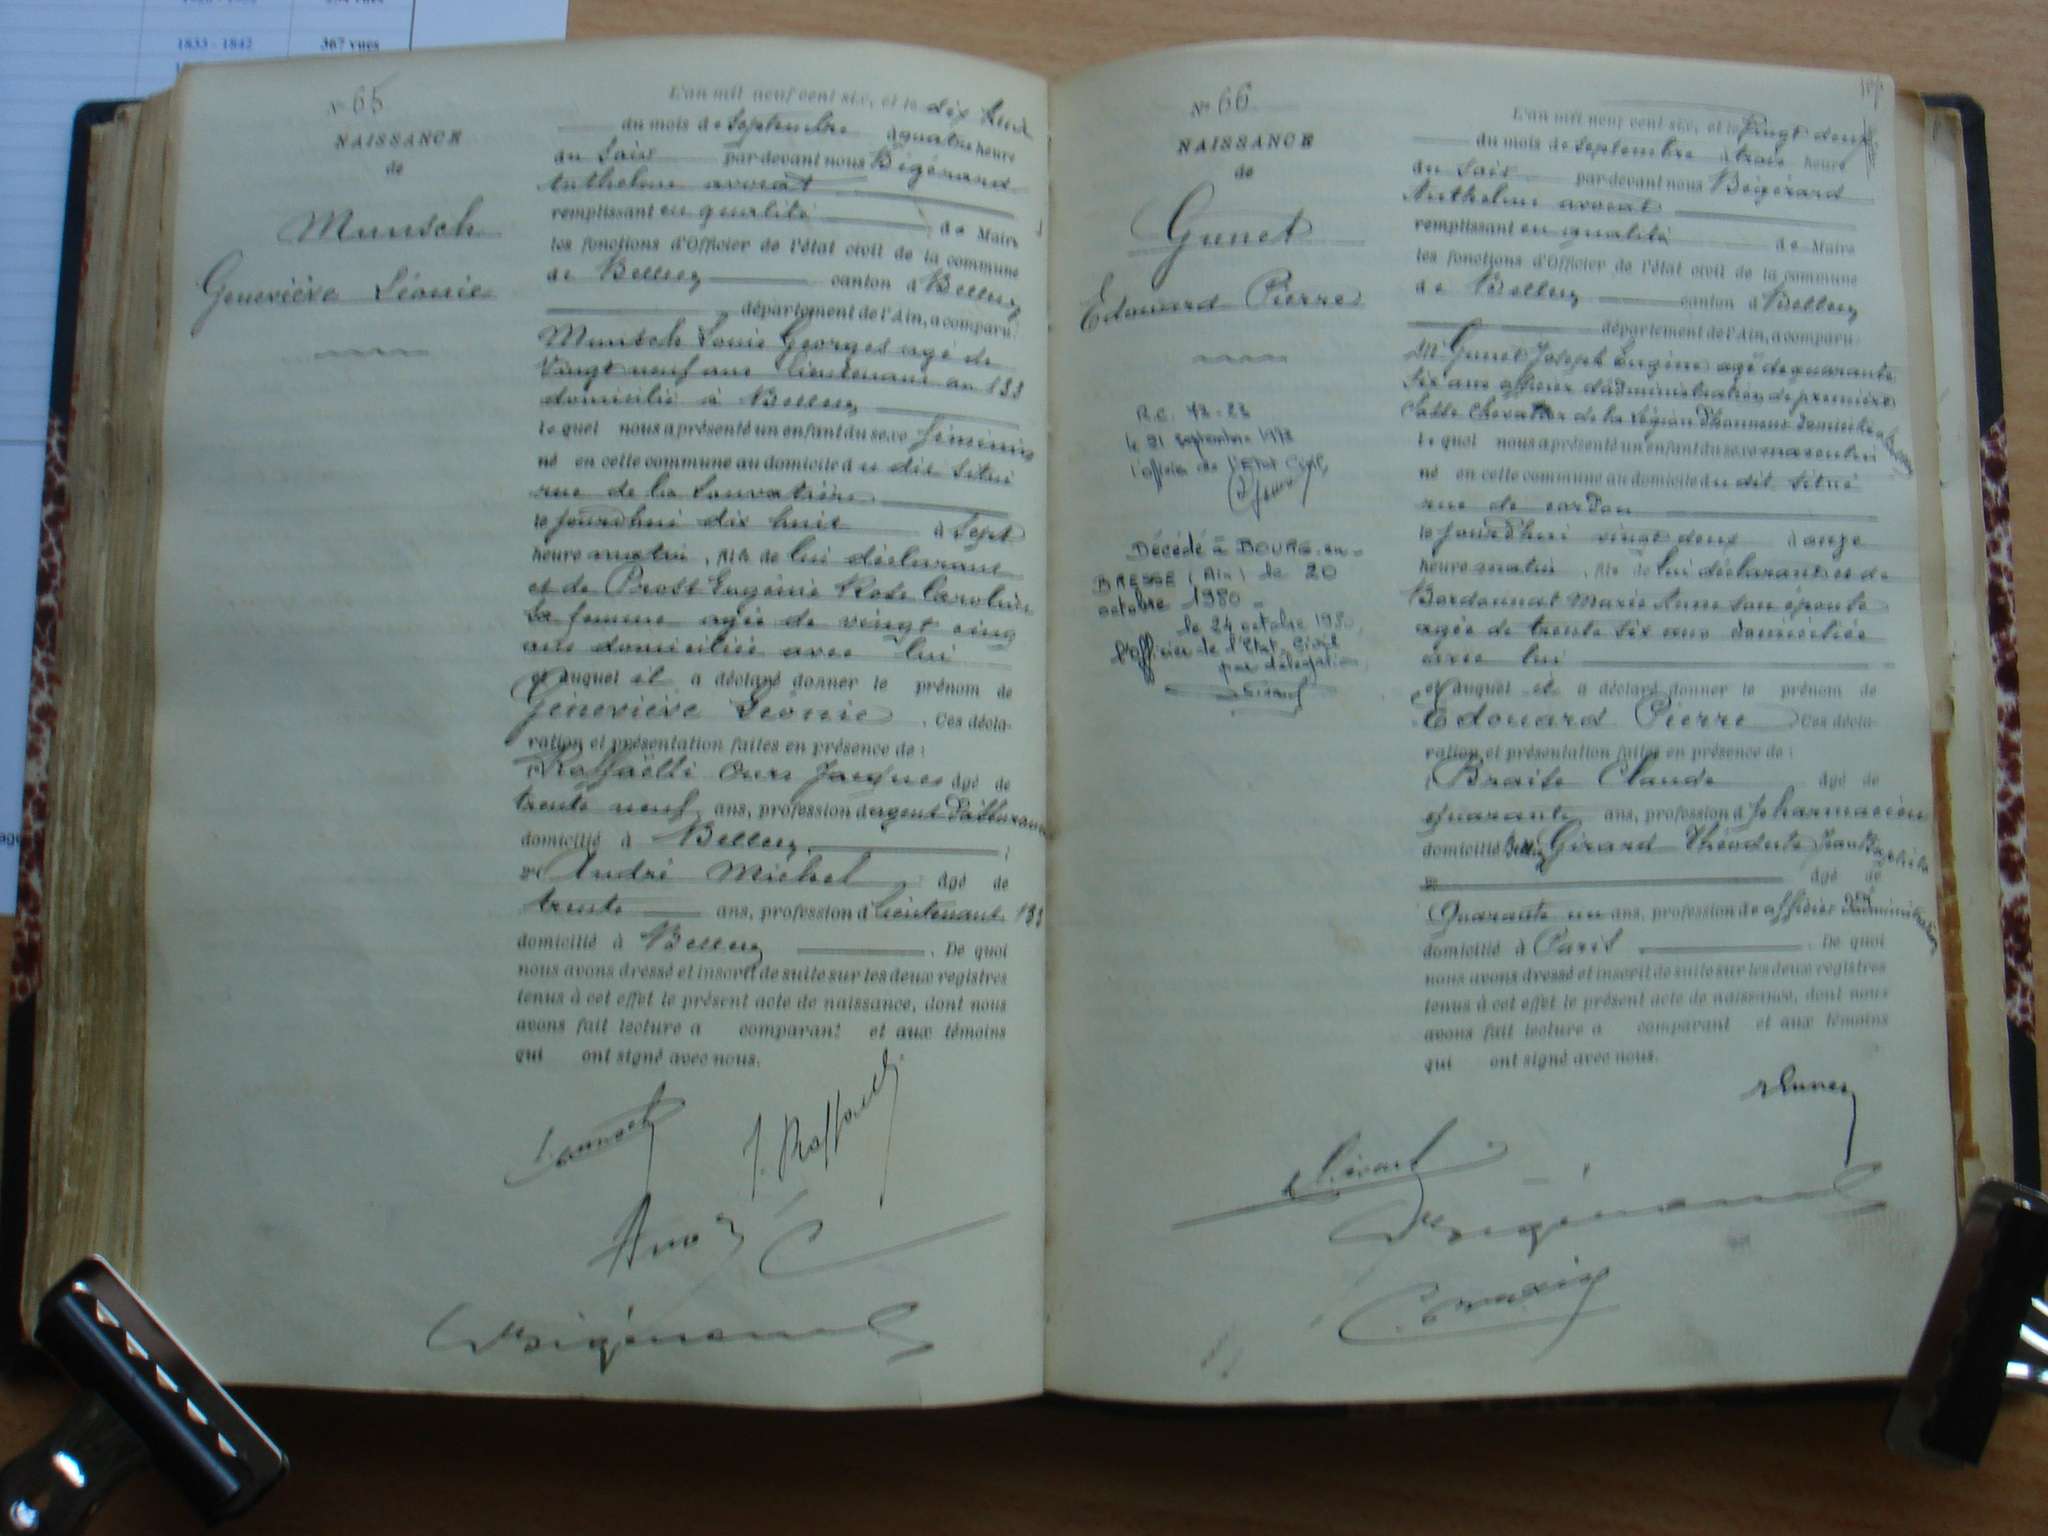 1833 - 1842 367 vues
N° 65
NAISSANCE
de
Munsch
Geneviève Léonie
L'an mil neuf cent six, et le dix huit
du mois de septembre à quatre heure
du soir par devant nous Bigérard
Anthelme avocat
remplissant en qualité de Maire
les fonctions d'Officier de l'état civil de la commune
de Belley canton d Belley
département de l'Ain, a comparu
Munsch Louis Georges agé de
Vingt neuf ans lieutenant au 133
domicilié à Belley
lequel nous a présenté un enfant du sexe féminin
né en cette commune au domicile du dit situé
rue de la
le jourd'hui dix huit à sept
heure matin, fils de lui déclarant
et de Prost Eugénie Rose Caroline
sa femme agée de vingt cinq
ans domiciliée avec lui
et auquel il a déclaré donner le prénom de
Geneviève Léonie. Ces décla-
ration et présentation faites en présence de :
1° Raffaëlli Ours Jacques âgé de
trente neuf ans, profession d'agent d'assurance
domicilié à Belley ;
2° André Michel âgé de
trente ans, profession d lieutenant 133
domicilié à Belley. De quoi
nous avons dressé et inscrit de suite sur les deux registres
tenus à cet effet le présent acte de naissance, dont nous
avons fait lecture a comparant et aux témoins
qui ont signé avec nous.
J. Raffaelli
N° 66
NAISSANCE
de
Gunet
Edouard Pierre
R.C. 73-23
le 21 septembre 1973
l'officier de l'Etat Civil,
Décédé à BOURG-en-
BRESSE (Ain) le 20
octobre 1980 -
le 24 octobre 1980,
l'officier de l'Etat-Civil
par délégation,
L'an mil neuf cent six, et le vingt deux
du mois de septembre à trois heure
du soir par devant nous Bigérard
Anthelme avocat
remplissant en qualité de Maire
les fonctions d'Officier de l'état civil de la commune
de Belley canton d Belley
département de l'Ain, a comparu
M Gunet Joseph Eugène agé de quarante
six ans officier d'administration de première
classe Chevalier de la Légion d'honneur domicilié à Belley
lequel nous a présenté un enfant du sexe masculin
né en cette commune au domicile du dit situé
rue de
le jourd'hui vingt deux à onze
heure matin, fils de lui déclarant et de
Marie Anne son épouse
agée de trente six ans domiciliée
avec lui
et auquel il a déclaré donner le prénom de
Edouard Pierre Ces décla-
ration et présentation faites en présence de :
1° Claude âgé de
quarante ans, profession d pharmacien
domicilié Belley Girard Théodule Jean Baptiste
2° âgé de
Quarante un ans, profession de officier d'administration
domicilié à Paris. De quoi
nous avons dressé et inscrit de suite sur les deux registres
tenus à cet effet le présent acte de naissance, dont nous
avons fait lecture a comparant et aux témoins
qui ont signé avec nous.